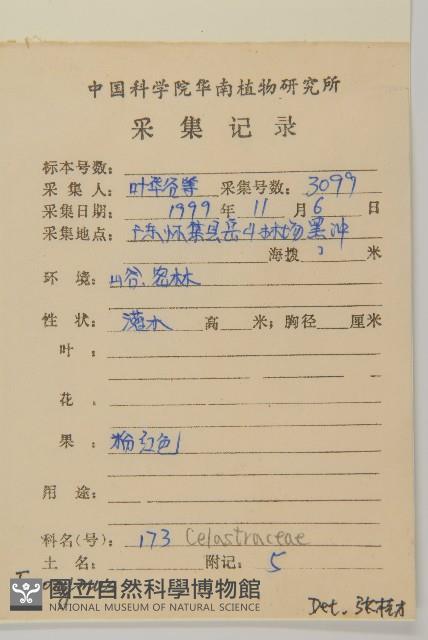 中国科学院华南植物研究所
采集记录
标本号数:
采集人: 叶华谷等 采集号数: 3099
采集日期: 1999年11月6日
采集地点: 广东怀集县岳山林场黑冲
海拨 米
环境: 山谷.密林
性状: 灌木 高 米; 胸径 厘米
叶:
花.
果: 粉红色
用途:
科名(号): 173 Celastraceae
土名: 附记: 5
國立自然科學博物館
NATIONAL MUSEUM OF NATURAL SCIENCE
Det. 张桂才